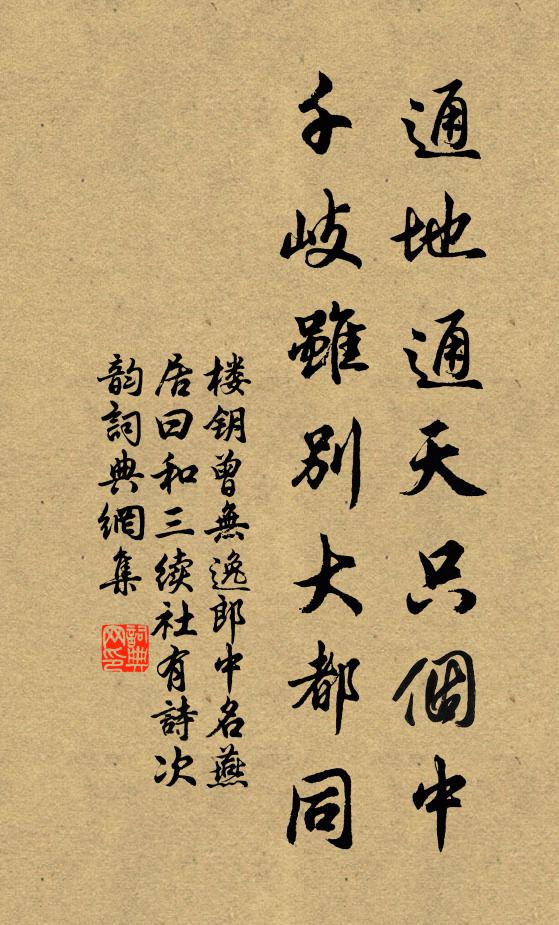 通地通天只個中
千岐雖別大都同
楼钥曾無逸郎中名燕
居曰和三续社有詩次
韵詞典網集
詞典
网印